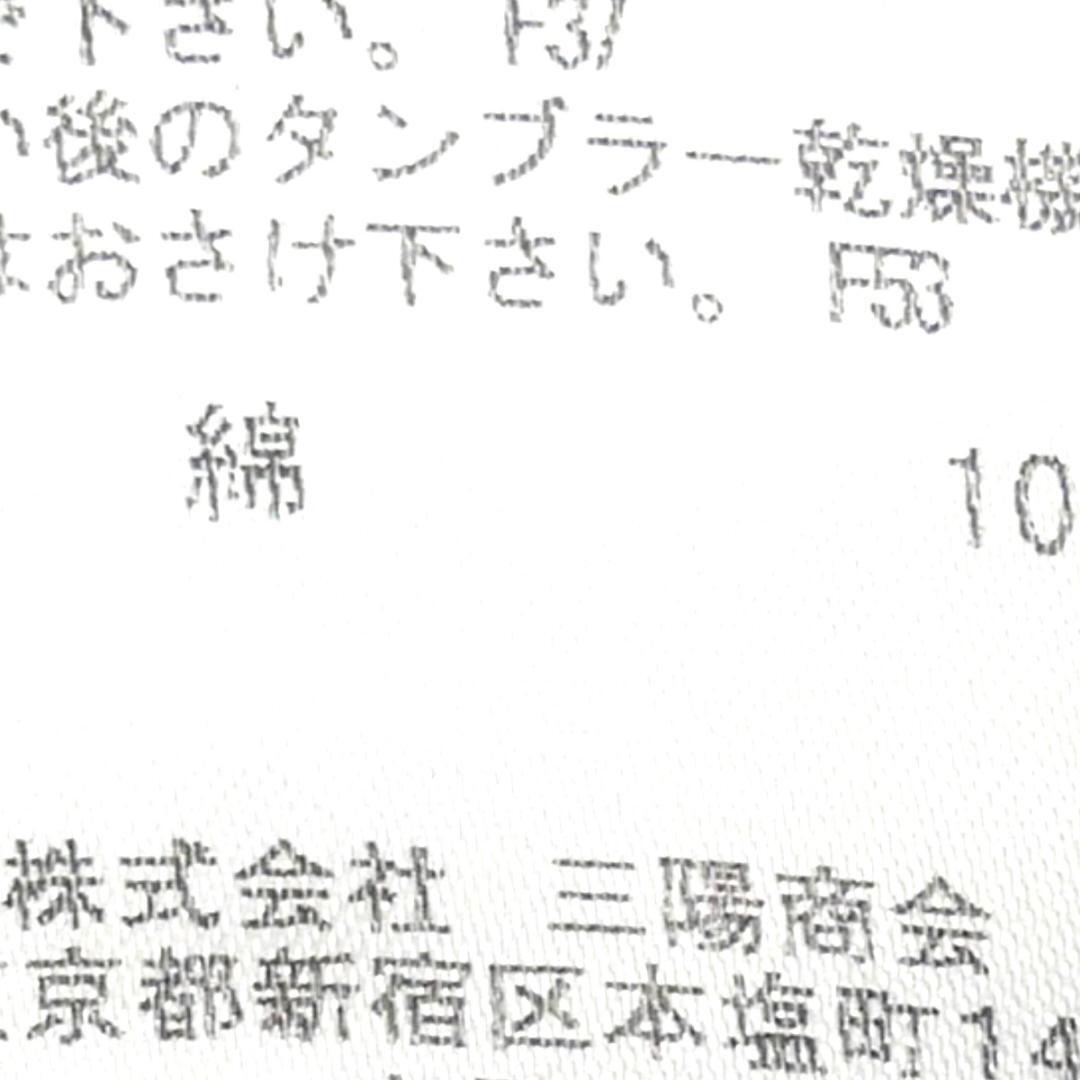 下さい。 F37
い後のタンブラー乾燥機
はおさけ下さい。 F53
綿 10
株式会社 三陽商会
京都新宿区本塩町14